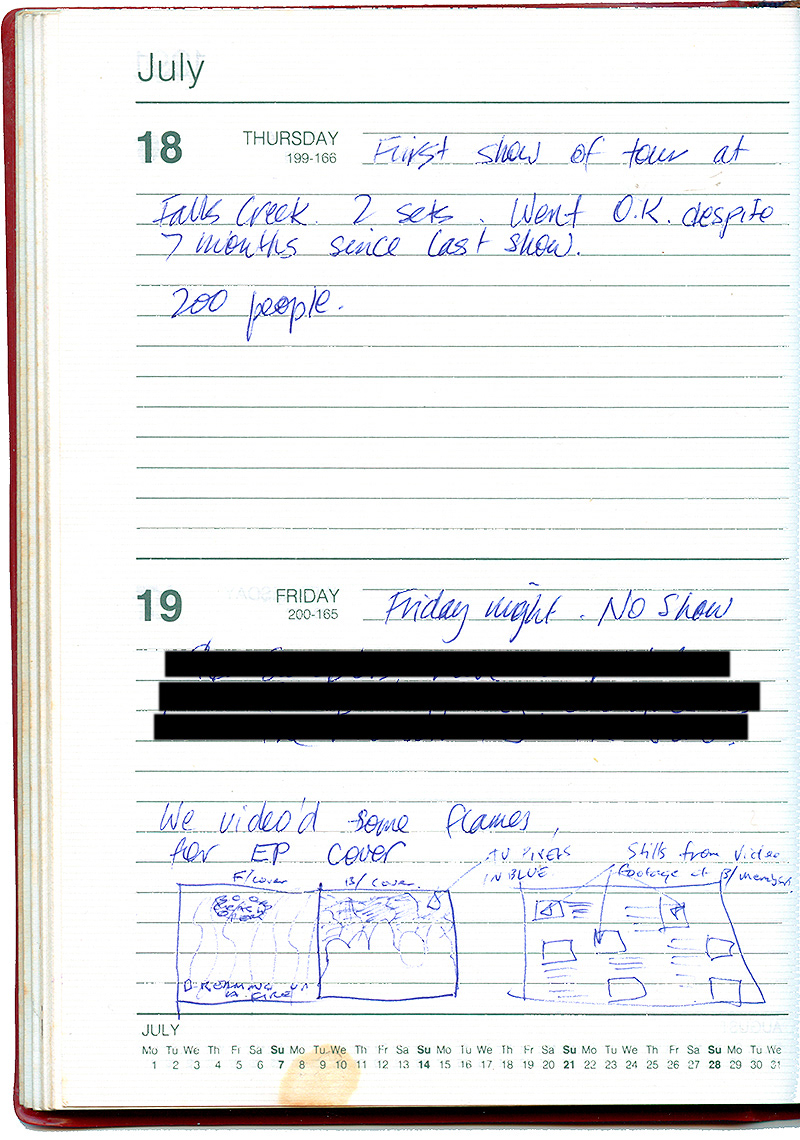 July
18 THURSDAY First show of tour at
199-166
Falls Creek. 2 sets. Went O.K. despite
7 months since last show.
200 people.
19 FRIDAY Friday night. No show
200-165
We video'd some flames,
for EP cover
F/cover B/ cover. TV PIXELS IN BLUE
Stills from video
footage of
DREAMING UP
A FIRE
JULY
Mo Tu We Th Fr Sa Su Mo Tu We Th Fr Sa Su Mo Tu We Th Fr Sa Su Mo Tu We Th Fr Sa Su Mo Tu We
1 2 3 4 5 6 7 8 9 10 11 12 13 14 15 16 17 18 19 20 21 22 23 24 25 26 27 28 29 30 31